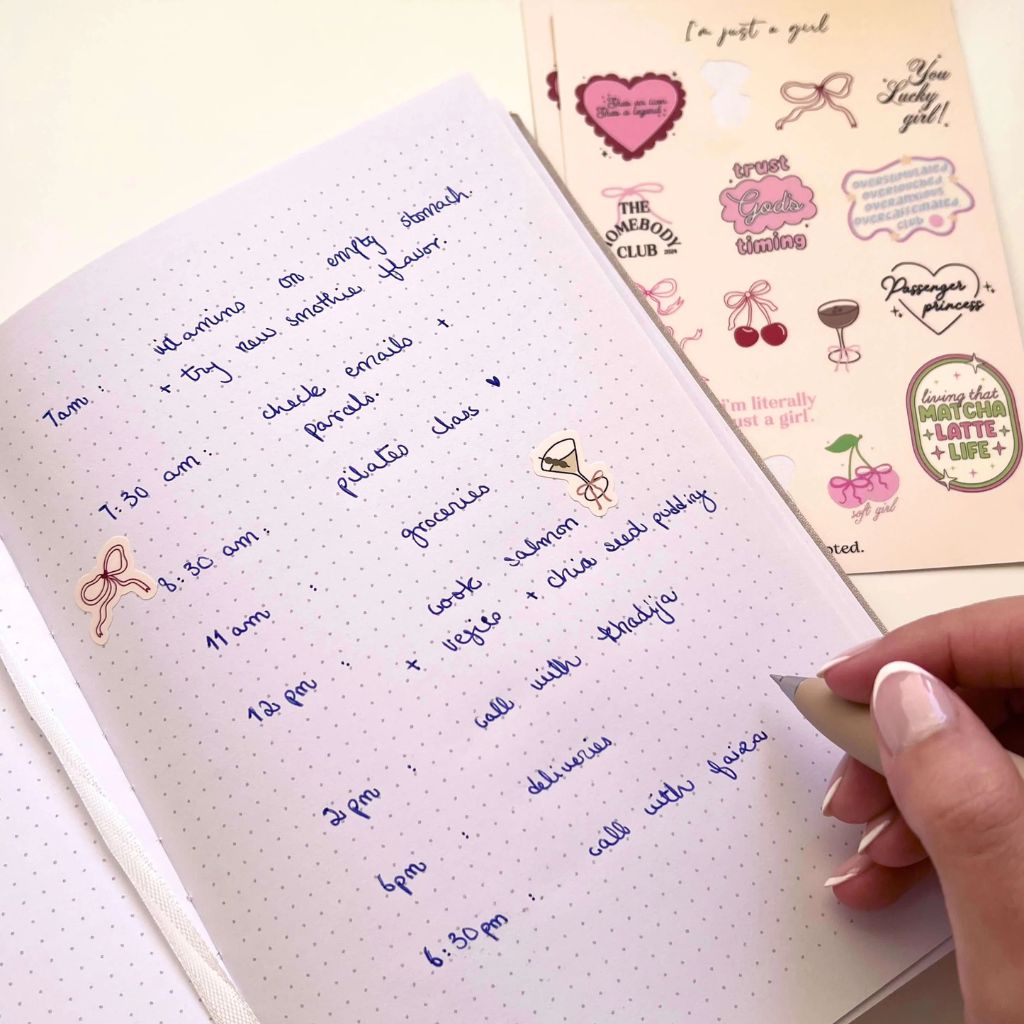 7am : vitamins on empty stomach.
+ try new smothie flavor.
7:30 am : check emails +
parcels.
8:30 am : pilates class ♥
11 am : groceries
12 pm : cook salmon
+ vejies + chia seed pudding
2pm : call with khadija
6pm : deliveries
6:30pm : call with faiza
I'm just a girl
She's an icon
She's a legend
You
Lucky
girl!
THE
HOMEBODY
CLUB
trust
God's
timing
OVERSTIMULATED
OVERTOUCHED
OVERANXIOUS
OVERCAFFEINATED
CLUB
Passenger
princess
I'm literally
just a girl.
living that
MATCHA
LATTE
LIFE
soft girl
oted.